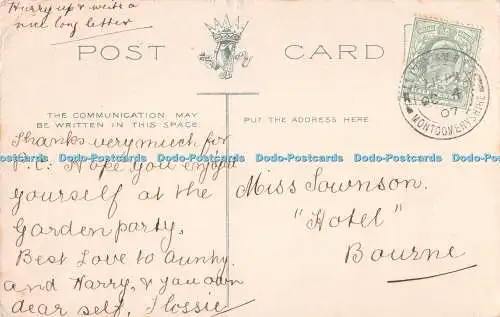 Hurry up & write a
nice long letter
POST CARD
THE COMMUNICATION MAY
BE WRITTEN IN THIS SPACE.
PUT THE ADDRESS HERE.
Thanks very much for
P.C. Hope you enjoyed
yourself at the
Garden party.
Best Love to Aunty
and Harry, & you own
dear self, Flossie
Miss Townson.
"Hotel"
Bourne
MONTGOMERYSHIRE
07
Dodo-Postcards Dodo-Postcards Dodo-Postcards Dodo-Postcards Dodo-Postcards